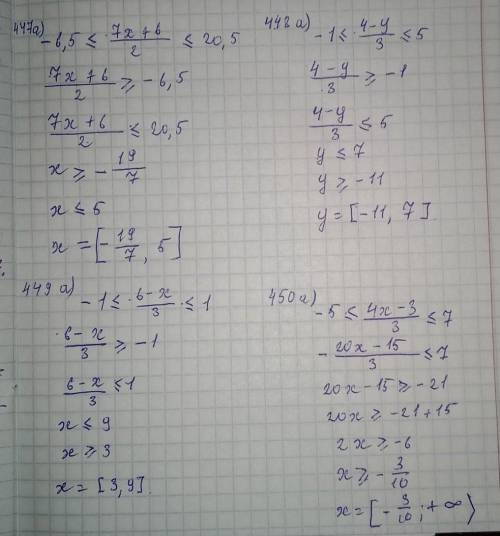 447а) -6,5 ≤ (7x+6)/2 ≤ 20,5
(7x+6)/2 ≥ -6,5
(7x+6)/2 ≤ 20,5
x ≥ -19/7
x ≤ 5
x = [-19/7, 5]
448 а) -1 ≤ (4-y)/3 ≤ 5
(4-y)/3 ≥ -1
(4-y)/3 ≤ 5
y ≤ 7
y ≥ -11
y = [-11, 7].
449 а) -1 ≤ (6-x)/3 ≤ 1
(6-x)/3 ≥ -1
(6-x)/3 ≤ 1
x ≤ 9
x ≥ 3
x = [3, 9].
450а) -5 ≤ (4x-3)/3 ≤ 7
-(20x-15)/3 ≤ 7
20x-15 ≥ -21
20x ≥ -21+15
2x ≥ -6
x ≥ -3/10
x = [-3/10; +∞)